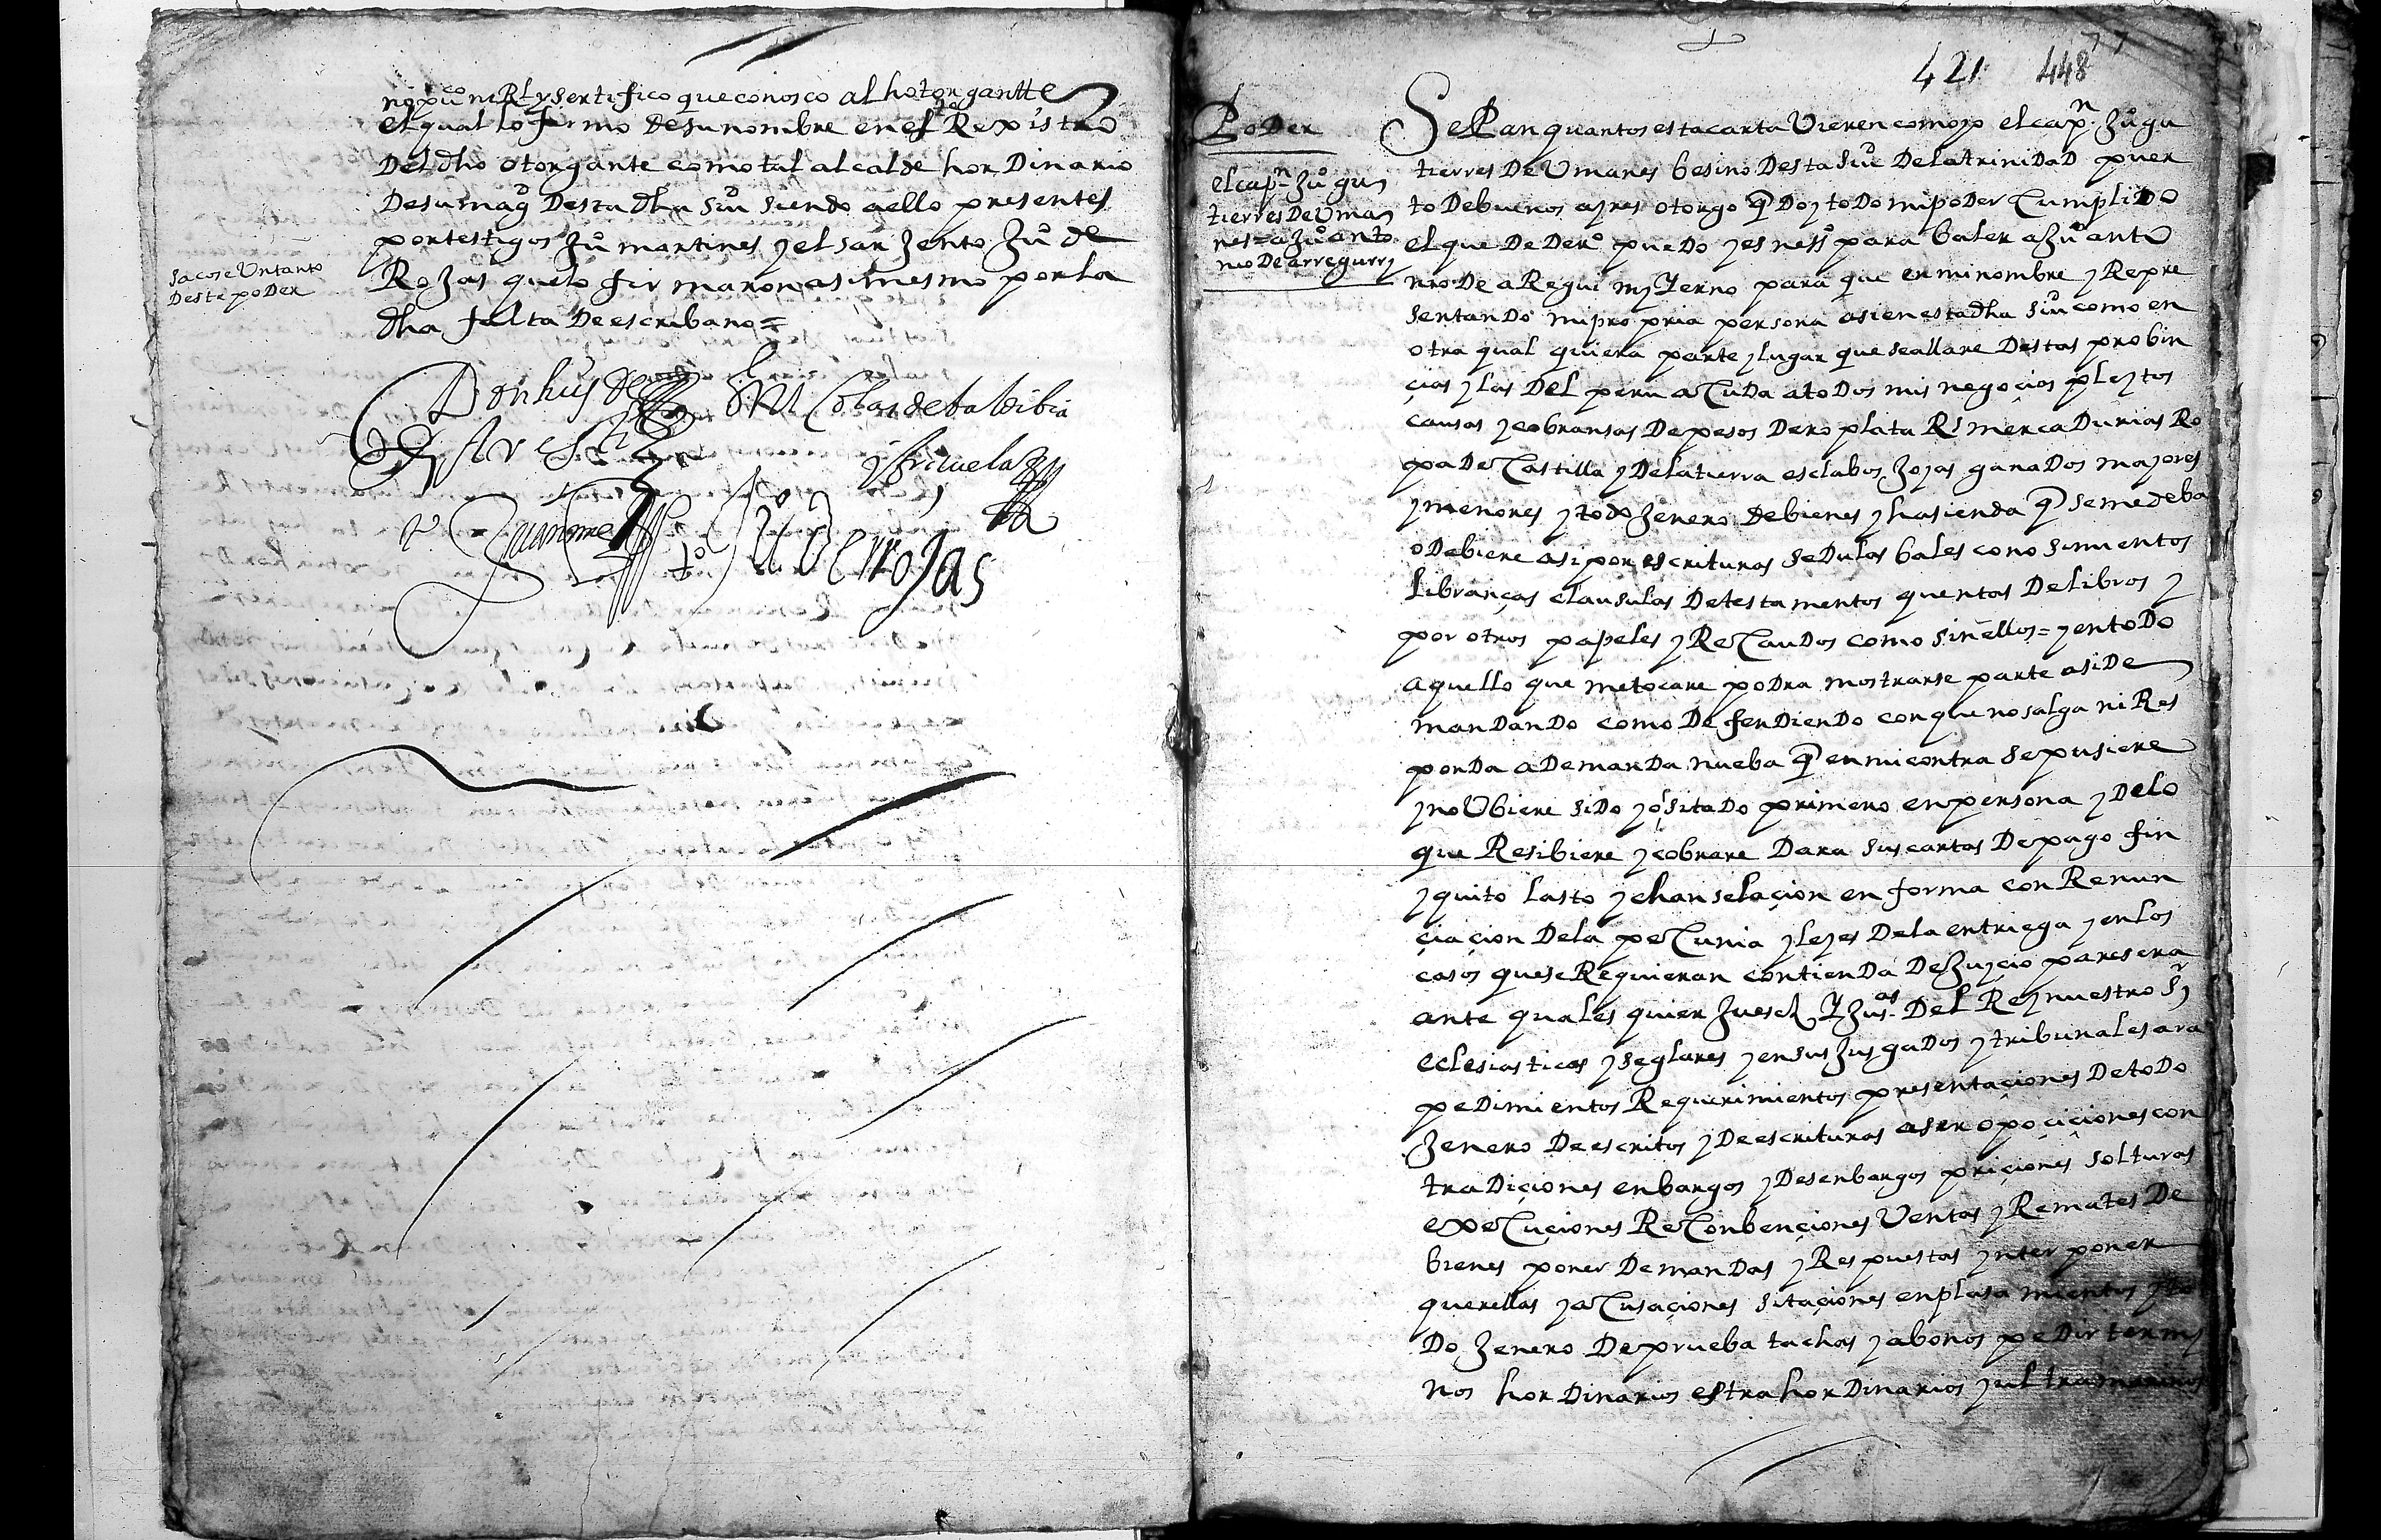 no puco ni Rl y sertifico que conosco al hotorgantte
el qual lo firmo de su nombre en este Rexistro
Del dho otorgante como tal alcalde hor Dinario
De su mag Desta dha Siu siendo a ello presentes
por testigos Ju martines y el sarJento Ju de
RoJas que lo firmaron asimesmo por la
dha falta De escribano =
sacose Un tanto
Deste poDer
Don luys de
Aresti
Colas de baldibia
y bricuela
to Juan mrs
to Ju de rrojas
421 448 77
PoDer
el capn Ju gu
tierres De Uma
nes = a Ju anto
nio De arregui
SePan quantos esta carta Vieren como yo el capn Ju gu
tierres De Umanes besino Desta Siu De la triniDaD puer
to De buenos ayres otorgo q Doy toDo mi poDer CumpliDo
el que De Dero pueDo y es nesso para baler a Ju anto
nio De aRegui my Yerno para que en mi nombre y Repre
sentanDo mi propria persona asi en esta dha siu como en
otra qual quiera parte y lugar que se allare Destas probin
çias y las Del peru aCuDa a toDos mis negoçios pleytos
causas y cobransas De pesos De ro plata Rs mercaDurias Ro
pa De Castilla y De la tierra esclabos Joyas ganaDos mayores
y menores y toDo Jenero de bienes y hasienda q se me deba
o Debiere asi por escrituras seDulas bales conosimientos
libranças clausulas De testamentos quentas De libros y
por otros papeles y ReCauDos como sin ellos = y en toDo
aquello que me tocare poDra mostrarse parte asi De
manDanDo como DefenDienDo con que no salga ni Res
ponDa a DemanDa nueba q en mi contra se pusiere
y no Ubiere siDo yo sitaDo primero en persona y De lo
que Resibiere y cobrare Dara sus cartas De pago fin
y quito lasto y chanselaçion en forma con Renun
çiaçion De la peCunia y leyes De la entriega y en los
casos que se Requieran contienDa De Juycio paresera
ante quales quier Jueses Y Jusas Del Rey nuestro Sr
eclesiasticos y seglares y en sus JusgaDos y tribunales ara
peDimientos Requerimientos presentaçiones De toDo
Jenero De escritos y De escrituras aser opoçiçiones con
traDiçiones enbargos y Desenbargos priçiones solturas
exeCuçiones ReConbençiones Ventas y Remates De
bienes poner DemanDas y Respuestas ynter poner
querellas y aCusaçiones sitaçiones enplasamientos y to
Do Jenero De prueba tachas y abonos peDir termi
nos hor Dinarios estrahorDinarios y ultramarinos